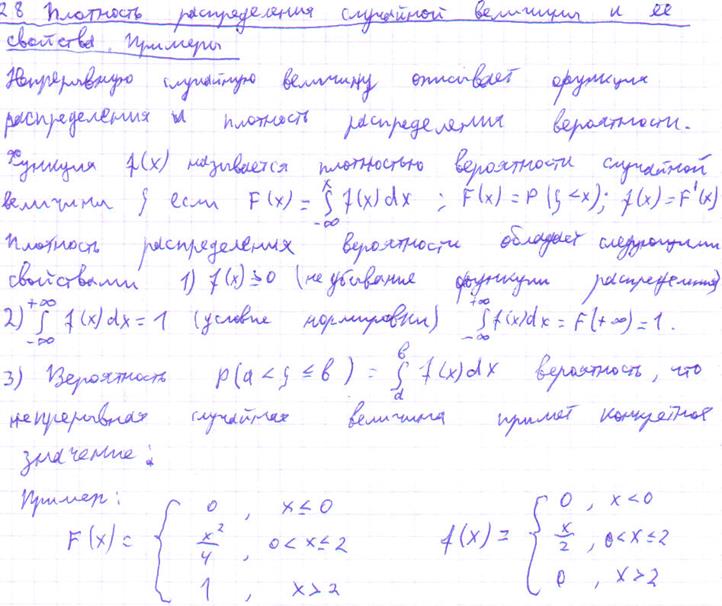 28 Плотность распределения случайной величины и её
свойства. Примеры
Непрерывную случайную величину описывает функция
распределения и плотность распределения вероятности.
Функция f(x) называется плотностью вероятности случайной
величины ξ если F(x) = ∫_{-∞}^{x} f(x)dx ; F(x) = P(ξ<x); f(x) = F'(x)
Плотность распределения вероятности обладает следующими
свойствами 1) f(x) ≥ 0 (неубывание функции распределения)
2) ∫_{-∞}^{+∞} f(x)dx = 1 (условие нормировки) ∫_{-∞}^{+∞} f(x)dx = F(+∞) = 1.
3) Вероятность P(a < ξ ≤ b) = ∫_{a}^{b} f(x)dx вероятность, что
непрерывная случайная величина примет конкретное
значение:
Пример:
F(x) = { 0, x ≤ 0 f(x) = { 0, x < 0
x²/4, 0 < x ≤ 2 x/2, 0 < x ≤ 2
1, x > 2 0, x > 2